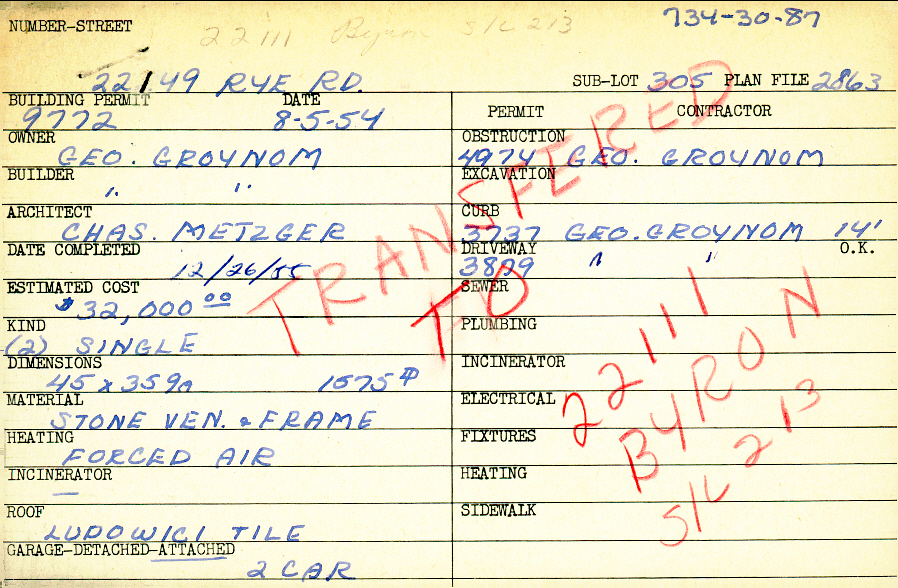 734-30-87
NUMBER-STREET 22111 Byron S/L 213
22149 RYE RD. SUB-LOT 305 PLAN FILE 2863
BUILDING PERMIT DATE
9772 8-5-54
OWNER
GEO. GROYNOM
BUILDER
" "
ARCHITECT
CHAS. METZGER
DATE COMPLETED
12/26/55
ESTIMATED COST
$32,000 00
KIND
(2) SINGLE
DIMENSIONS
45 x 35 1575
MATERIAL
STONE VEN. & FRAME
HEATING
FORCED AIR
INCINERATOR
—
ROOF
LUDOWICI TILE
GARAGE-DETACHED-ATTACHED
2 CAR
PERMIT CONTRACTOR
OBSTRUCTION
4974 GEO. GROYNOM
EXCAVATION
CURB
3737 GEO. GROYNOM 14'
DRIVEWAY O.K.
3899 " "
SEWER
PLUMBING
INCINERATOR
ELECTRICAL
FIXTURES
HEATING
SIDEWALK
TRANSFERED
TO
22111
BYRON
S/L 213